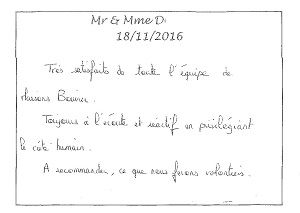 Mr & Mme D
18/11/2016
Très satisfaits de toute l'équipe de
Maisons Bouvier.
Toujours à l'écoute et réactif en privilégiant
le côté humain.
A recommander, ce que nous ferons volontiers.